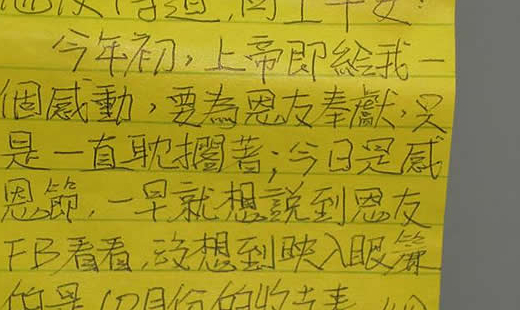 平安!
今年初,上帝即給我一
個感動,要為恩友奉獻,只
是一直耽擱著;今日是感
恩節,一早就想說到恩友
FB看看,沒想到映入眼簾
的是10月份的收支表